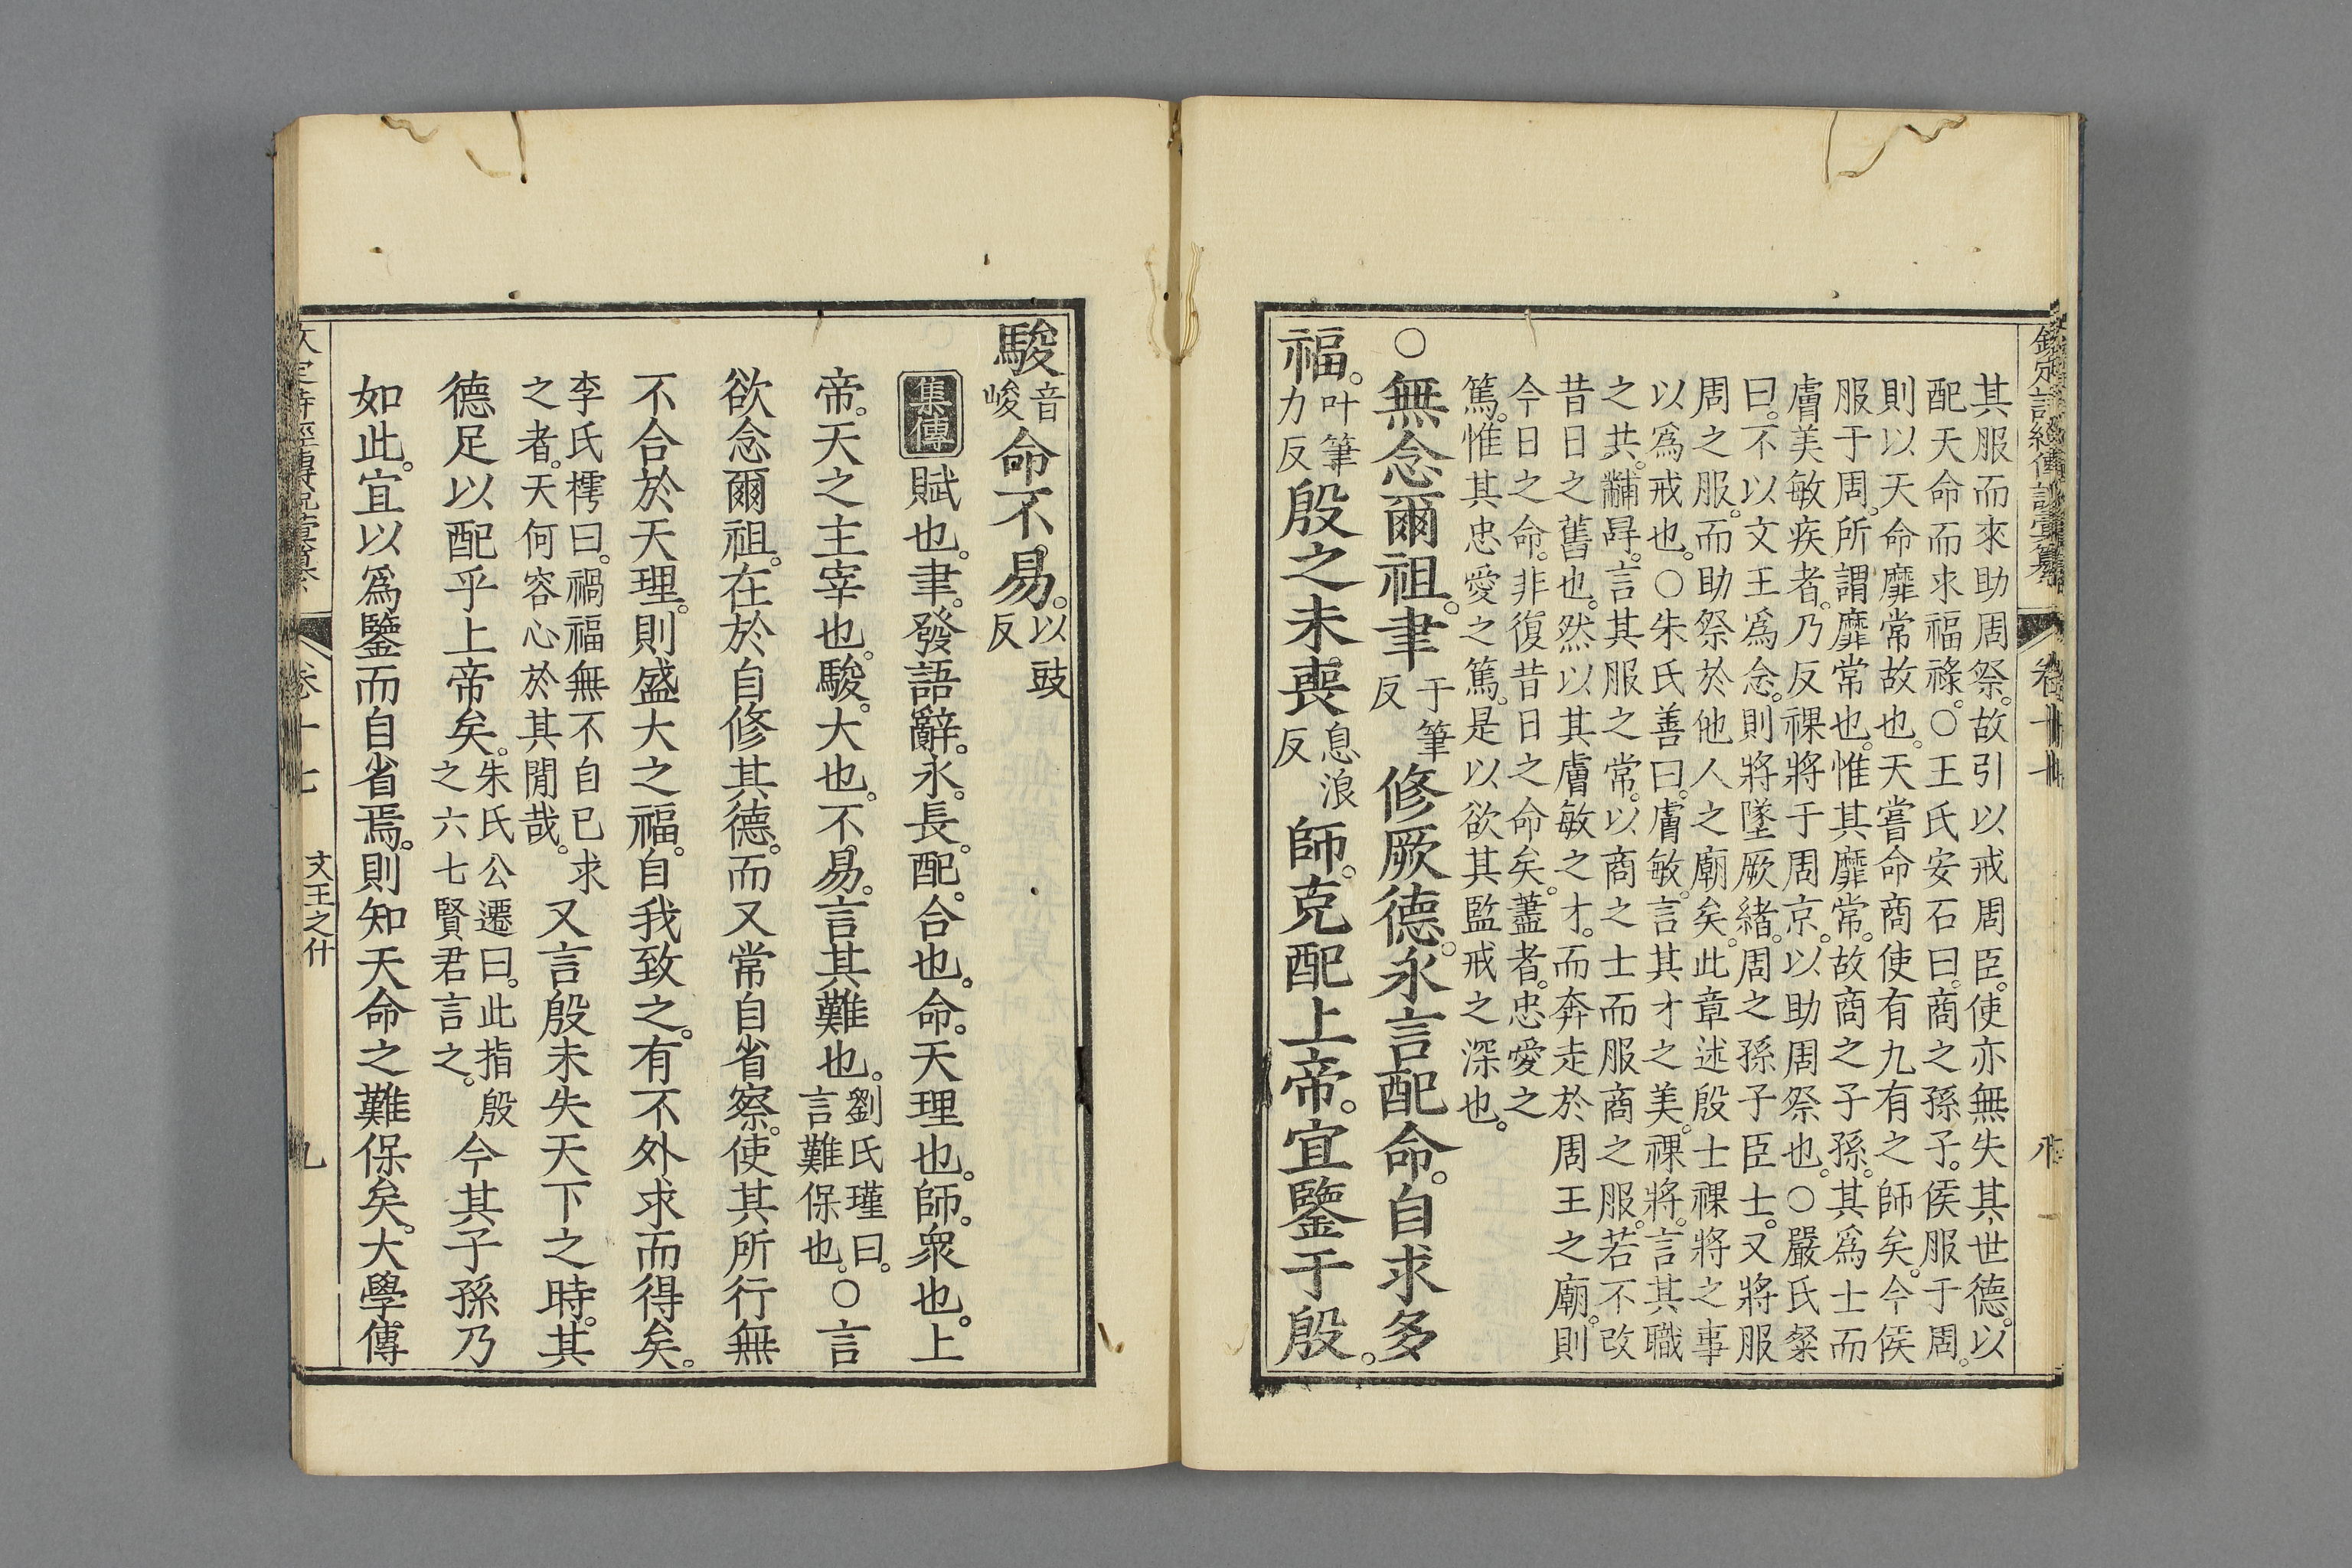 其服而來助周祭。故引以戒周臣。使亦無失其世德。以
配天命而求福祿。○王氏安石曰。商之孫子。侯服于周。
則以天命靡常故也。天嘗命商使有九有之師矣。今侯
服于周。所謂靡常也。惟其靡常。故商之子孫。其爲士而
膚美敏疾者。乃反祼將于周京。以助周祭也。○嚴氏粲
曰。不以文王爲念。則將墜厥緒。周之孫子臣士。又將服
周之服。而助祭於他人之廟矣。此章述殷士祼將之事
以爲戒也。○朱氏善曰。膚敏。言其才之美。祼將。言其職
之共。黼冔。言其服之常。以商之士而服商之服。若不改
昔日之舊也。然以其膚敏之才。而奔走於周王之廟。則
今日之命。非復昔日之命矣。藎者。忠愛之
篤。惟其忠愛之篤。是以欲其監戒之深也。
○無念爾祖。聿于筆反修厥德。永言配命。自求多
福。叶筆力反殷之未喪息浪反師。克配上帝。宜鑒于殷。
駿音峻命不易。以豉反
集傳賦也。聿。發語辭。永。長。配。合也。命。天理也。師。衆也。上
帝。天之主宰也。駿。大也。不易。言其難也。劉氏瑾曰。言難保也。○言
欲念爾祖。在於自修其德。而又常自省察。使其所行無
不合於天理。則盛大之福。自我致之。有不外求而得矣。
李氏樗曰。禍福無不自已求之者。天何容心於其閒哉。又言殷未失天下之時。其
德足以配乎上帝矣。朱氏公遷曰。此指殷之六七賢君言之。今其子孫乃
如此。宜以爲鑒而自省焉。則知天命之難保矣。大學傳
卷十七
文王之什
九